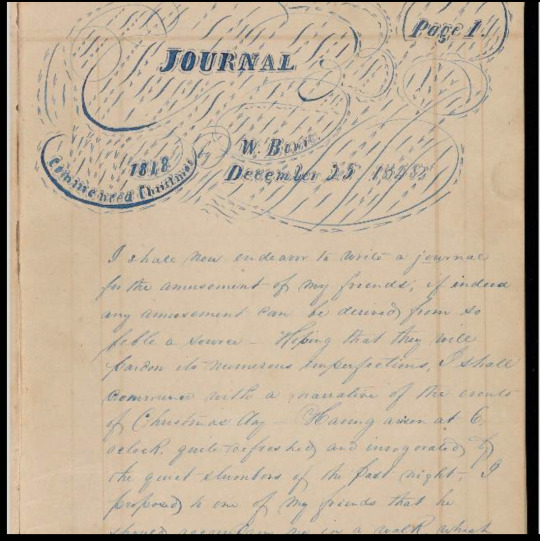 Page 1.
JOURNAL
W. Bowie.
December 25 1848
1848
Commenced Christmas
I shall now endeavor to write a journal
for the amusement of my friends, if indeed
any amusement can be derived from so
feble a source – Hoping that they will
pardon its numerous imperfections, I shall
commence with a narrative of the events
of Christmas day – Having arisen at 6
oclock, quite refreshed and invigorated by
the quiet slumbers of the past night, I
proposed to one of my friends that he
should accompany me in a walk which